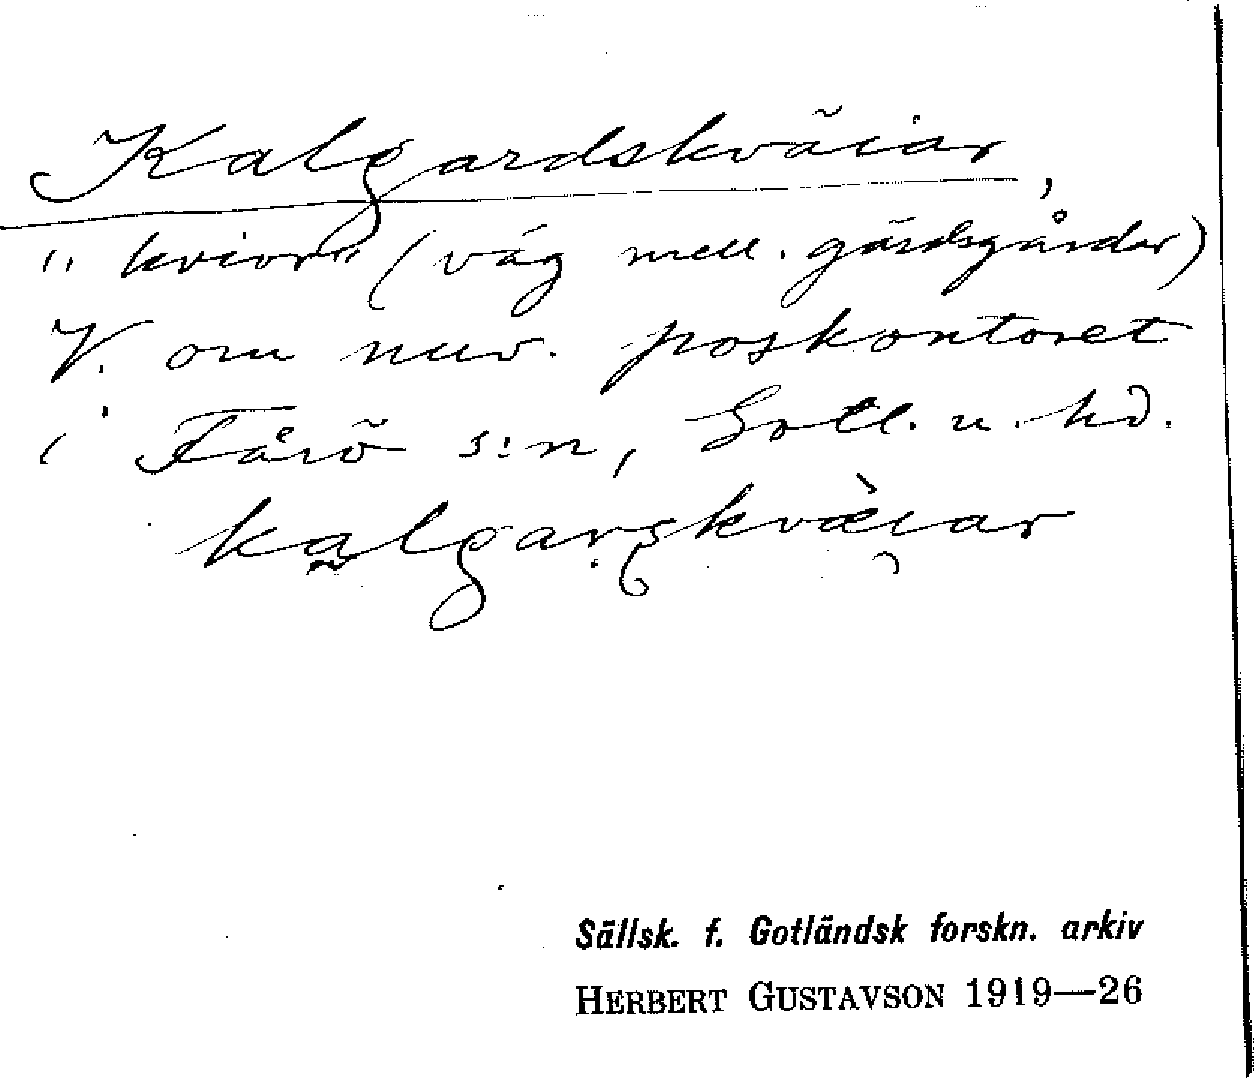 Kalgardskväiar,
"kvior" (väg mell. gärdsgårdar)
V. om nuv. poskontoret
i Fårö s:n, Gotl. n. hd.
kalgarskvæ̀iar
Sällsk. f. Gotländsk forskn. arkiv
HERBERT GUSTAVSON 1919—26